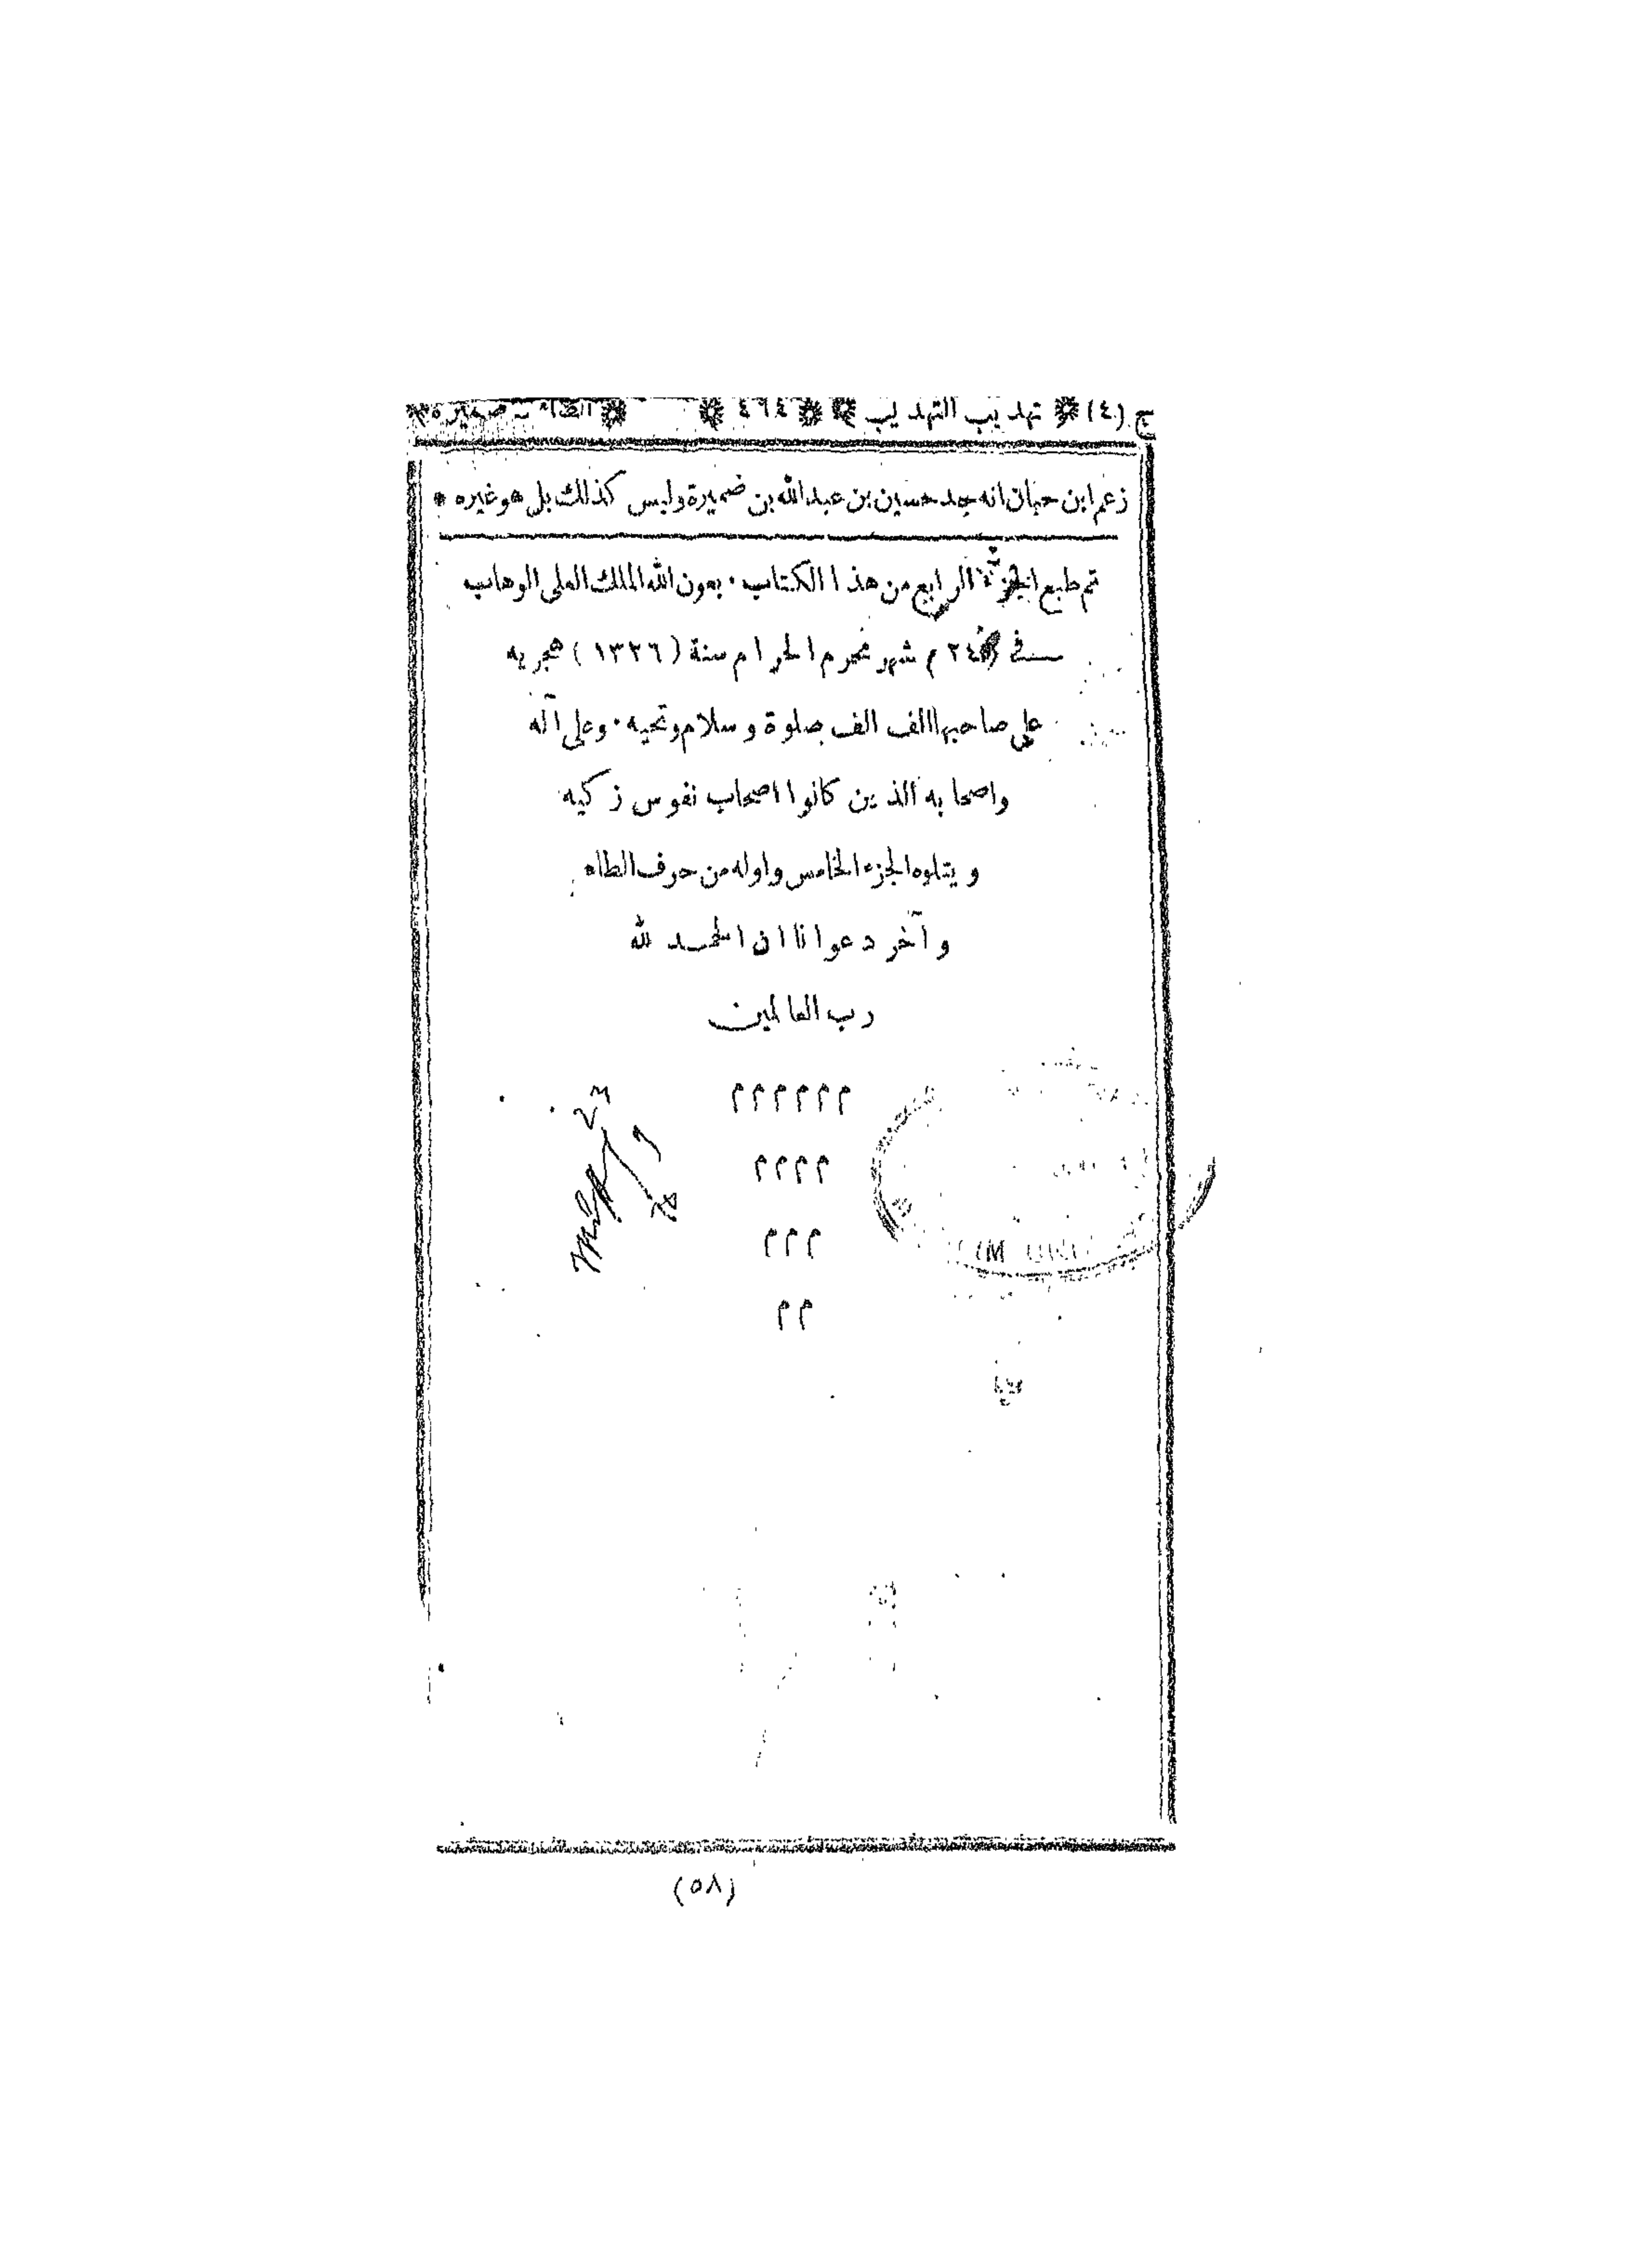 ج (٤) تهذيب التهذيب ٤٦٤ ضميرة
زعم ابن حبان انه جد حسين بن عبدالله بن ضميرة وليس كذلك بل هو غيره *
تم طبع الجزء الرابع من هذا الكتاب . بعون الله الملك العلى الوهاب
فى ٢٤ م شهر محرم الحرام سنة (١٣٢٦) هجريه
على صاحبها الف الف صلوة و سلام وتحيه . وعلى آله
واصحابه الذين كانوا اصحاب نفوس زكيه
و يتلوه الجزء الخامس واوله من حرف الطاء
و آخر دعوانا ان الحمد لله
رب العالمين
م م م م م م
م م م م
م م م
م م
(٥٨)